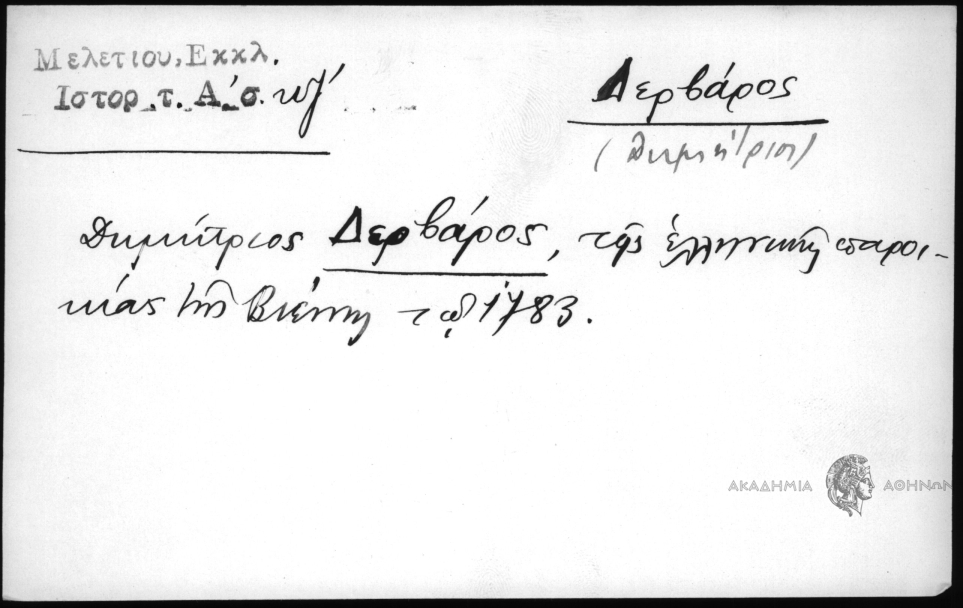 Μελετίου, Εκκλ.
Ιστορ. τ. Α΄ σ. κζ΄
Δερβάρος
(Δημήτριος)
Δημήτριος Δερβάρος, τῆς ἑλληνικῆς παροι-
κίας τῆς Βιέννης τῷ 1783.
ΑΚΑΔΗΜΙΑ ΑΘΗΝΩΝ